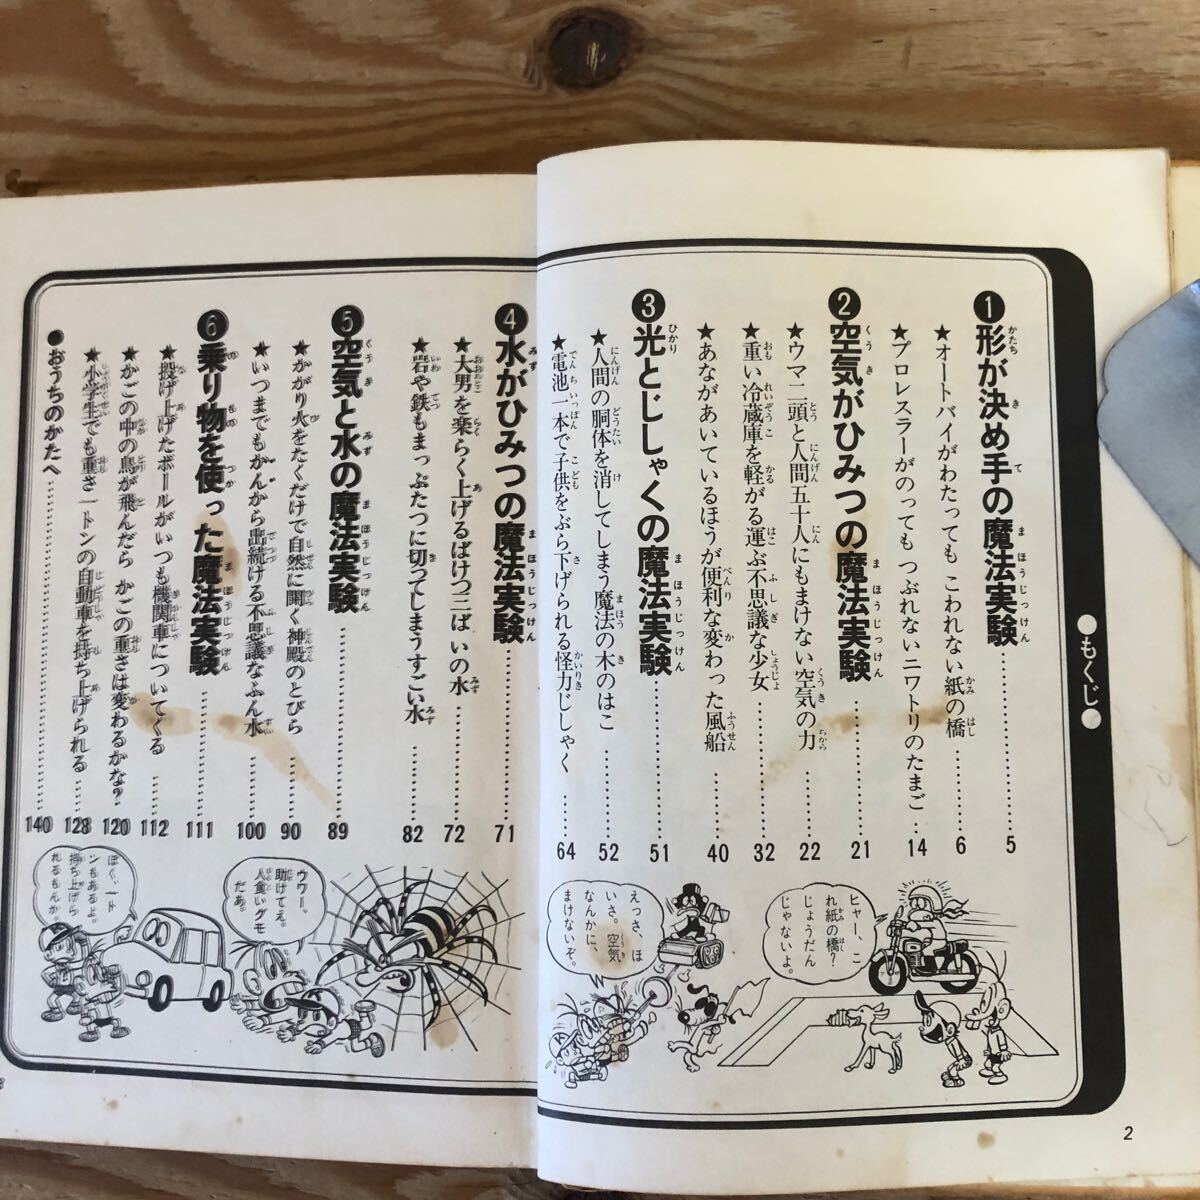 ●もくじ●
❶形が決め手の魔法実験……5
★オートバイがわたっても こわれない紙の橋……6
★プロレスラーがのっても つぶれないニワトリのたまご……14
❷空気がひみつの魔法実験……21
★ウマ二頭と人間五十人にもまけない空気の力……22
★重い冷蔵庫を軽がる運ぶ不思議な少女……32
★あながあいているほうが便利な変わった風船……40
❸光とじしゃくの魔法実験……51
★人間の胴体を消してしまう魔法の木のはこ……52
★電池一本で子供をぶら下げられる怪力じしゃく……64
❹水がひみつの魔法実験……71
★大男を楽らく上げるばけつ二はいの水……72
★岩や鉄もまっぷたつに切ってしまうすごい水……82
❺空気と水の魔法実験……89
★かがり火をたくだけで自然に開く神殿のとびら……90
★いつまでもかんから出続ける不思議なふん水……100
❻乗り物を使った魔法実験……111
★投げ上げたボールがいつも機関車についてくる……112
★かごの中の鳥が飛んだら かごの重さは変わるかな?……120
★小学生でも重さ一トンの自動車を持ち上げられる……128
●おうちのかたへ……140
ヒャー、こ
れ紙の橋?
じょうだん
じゃないよ。
えっさ、ほ
いさ。空気
なんかに、
まけないぞ。
ウワー、
助けてえ。
人食いグモ
だあ。
ぼく、一ト
ンもあるよ。
持ち上げら
れるもんか。
2